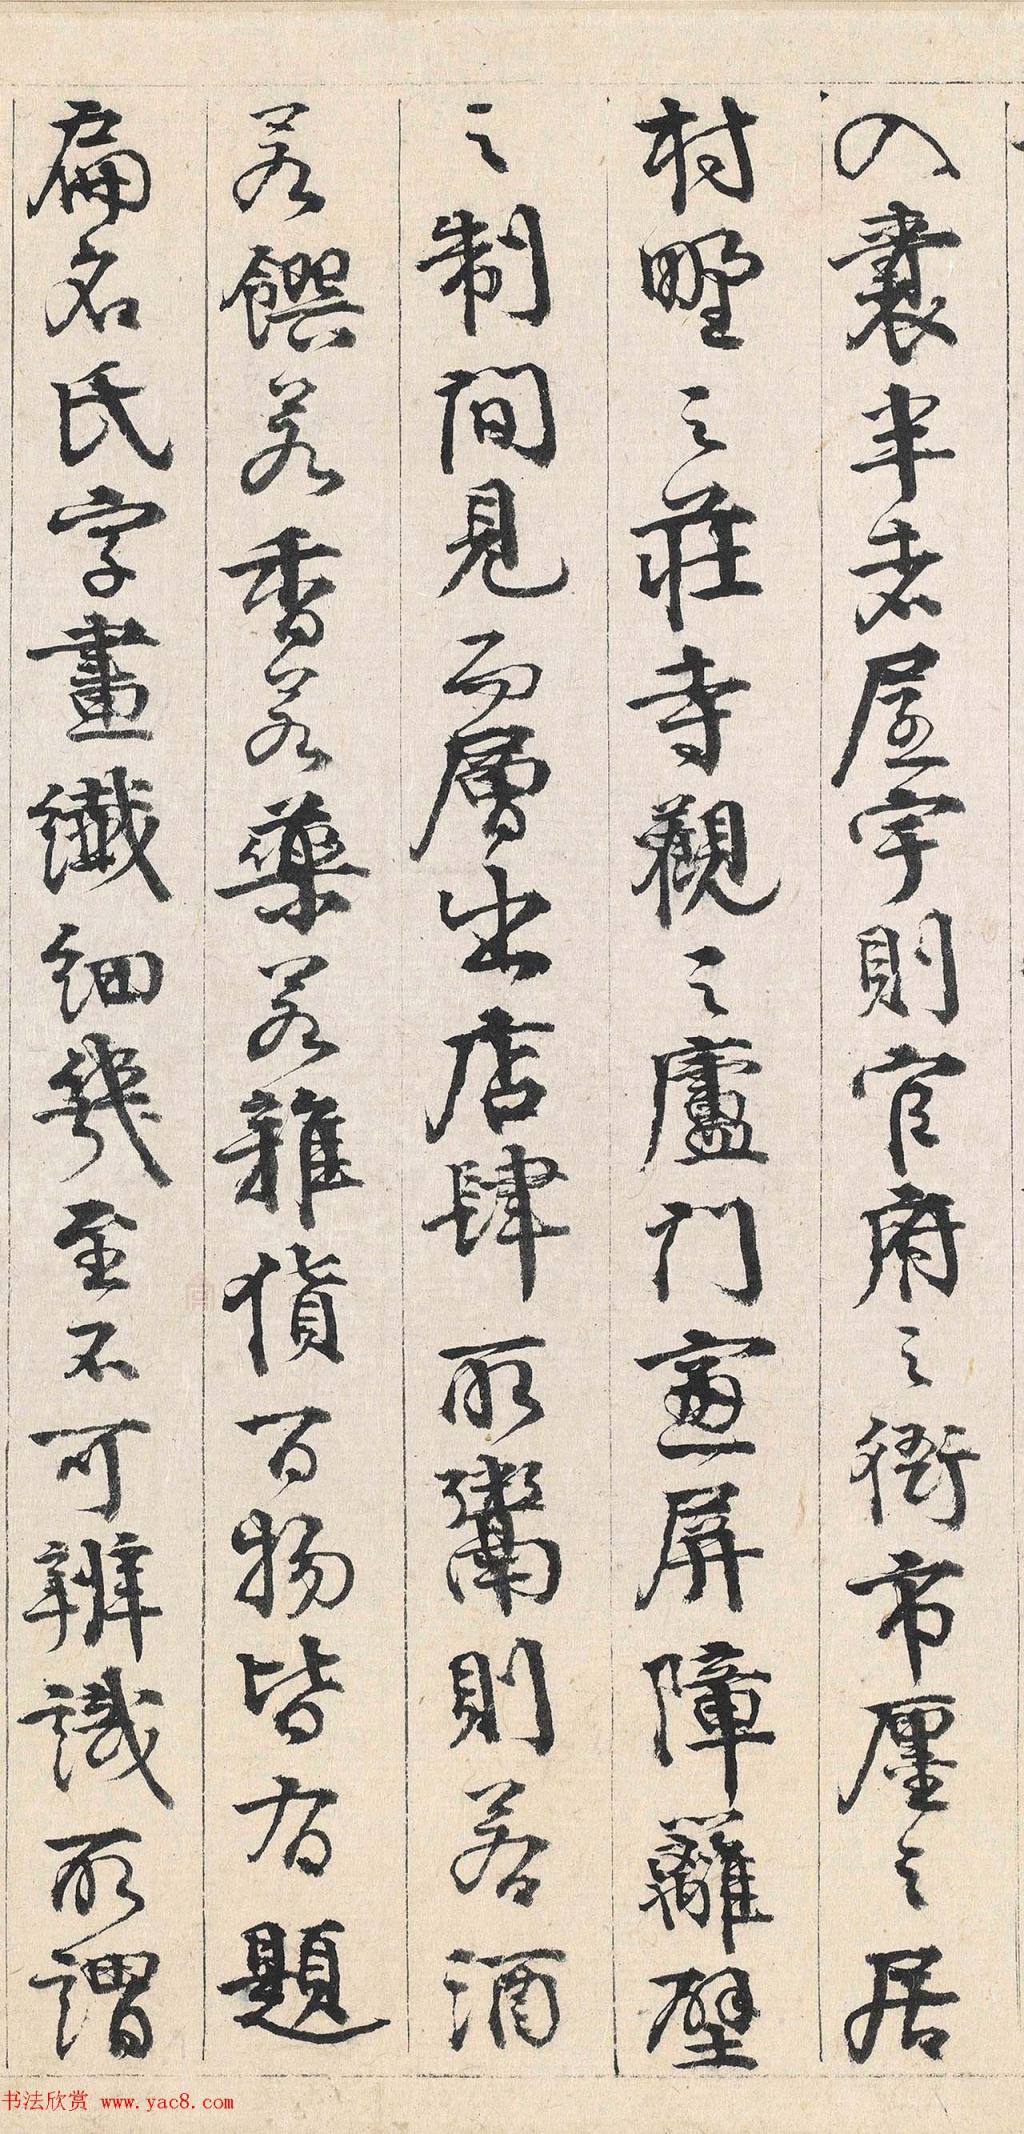 入囊半者屋宇則官府之衙市廛之居
村野之莊寺觀之廬門窗屏障籬壁
之制間見而層出店肆所鬻則若酒
若饌若香若藥若雜貨百物皆有題
扁名氏字畫纖細幾至不可辨識所謂
书法欣赏 www.yac8.com